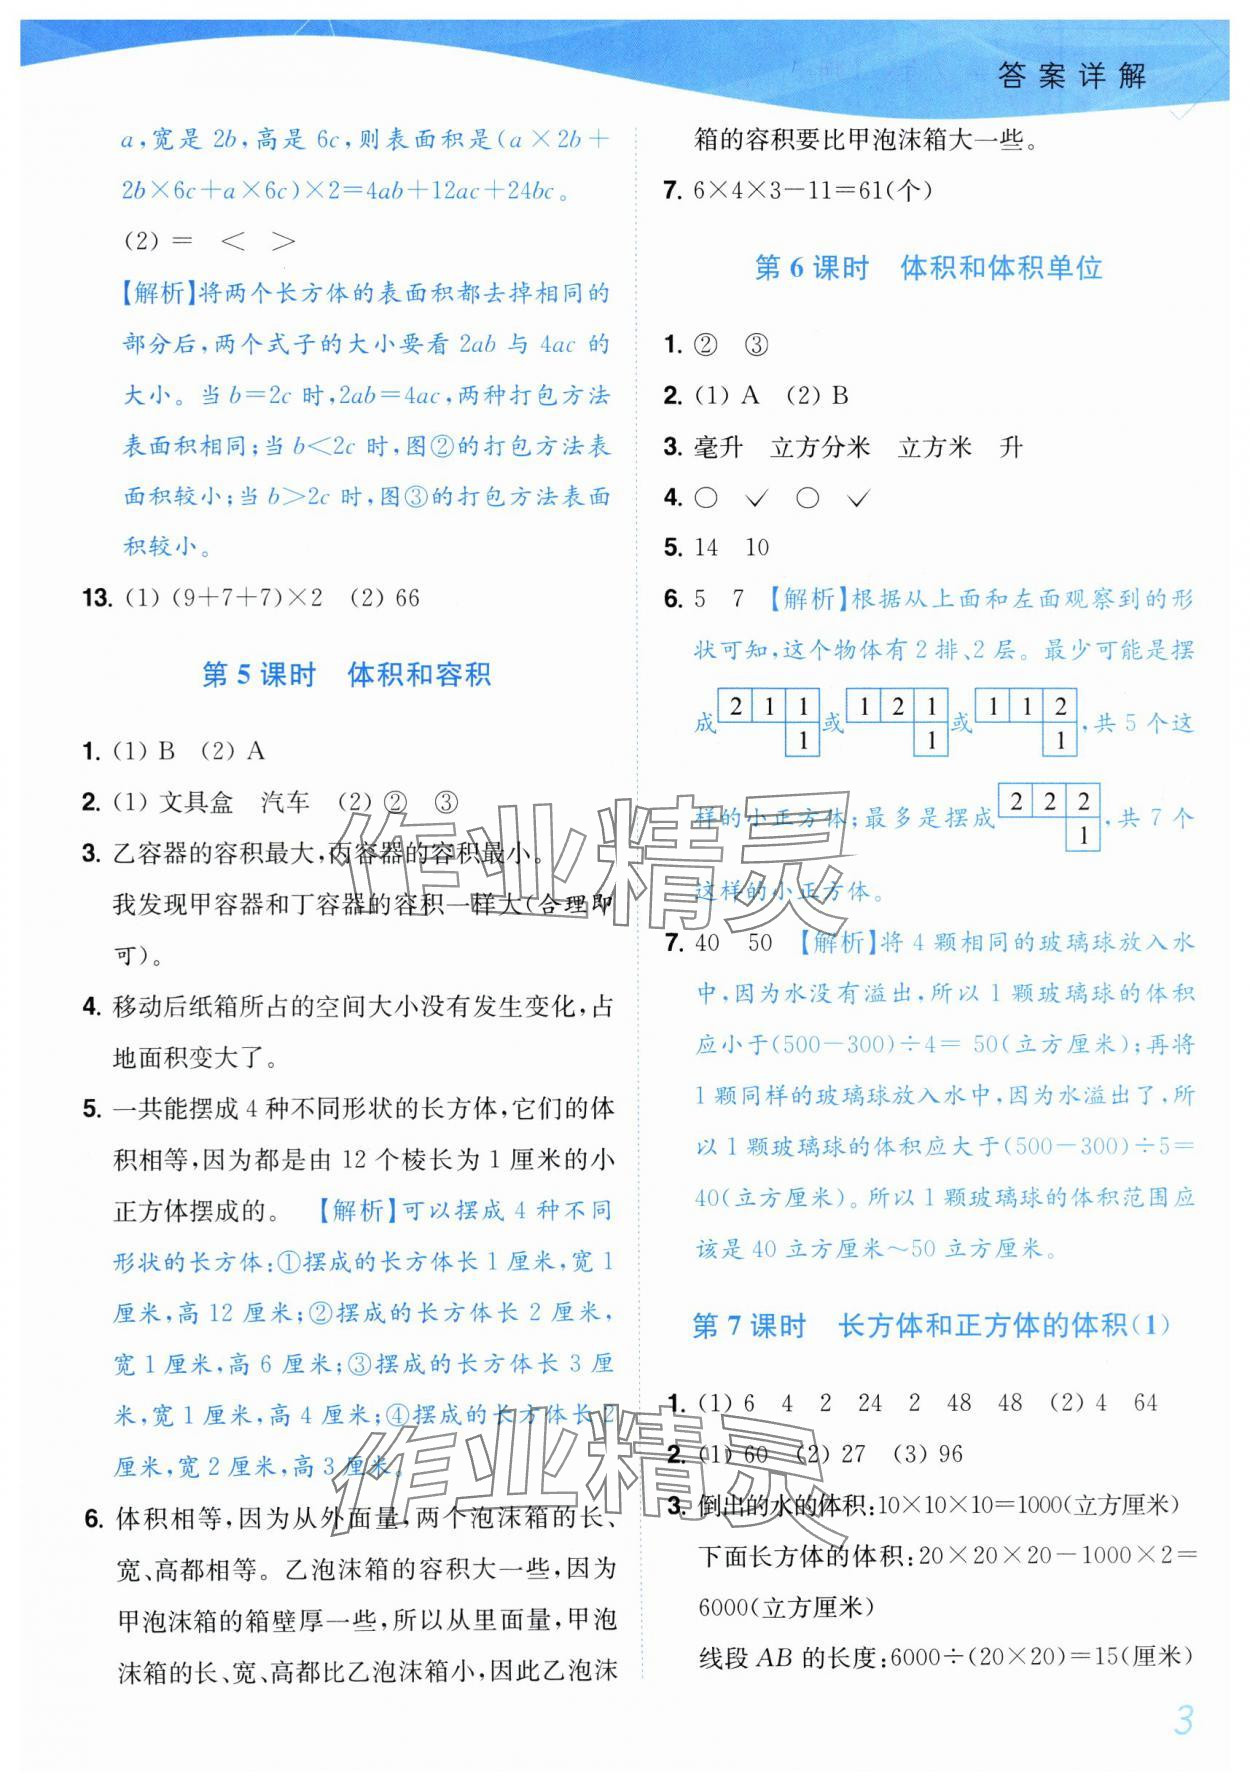 答案详解
a,宽是 2b,高是 6c,则表面积是(a×2b+
2b×6c+a×6c)×2=4ab+12ac+24bc。
(2) = < >
【解析】将两个长方体的表面积都去掉相同的
部分后,两个式子的大小要看 2ab 与 4ac 的
大小。当 b=2c 时,2ab=4ac,两种打包方法
表面积相同;当 b<2c 时,图②的打包方法表
面积较小;当 b>2c 时,图③的打包方法表面
积较小。
13. (1) (9+7+7)×2 (2) 66
第 5 课时 体积和容积
1. (1) B (2) A
2. (1) 文具盒 汽车 (2) ② ③
3. 乙容器的容积最大,丙容器的容积最小。
我发现甲容器和丁容器的容积一样大(合理即
可)。
4. 移动后纸箱所占的空间大小没有发生变化,占
地面积变大了。
5. 一共能摆成 4 种不同形状的长方体,它们的体
积相等,因为都是由 12 个棱长为 1 厘米的小
正方体摆成的。 【解析】可以摆成 4 种不同
形状的长方体:①摆成的长方体长 1 厘米,宽 1
厘米,高 12 厘米;②摆成的长方体长 2 厘米,
宽 1 厘米,高 6 厘米;③摆成的长方体长 3 厘
米,宽 1 厘米,高 4 厘米;④摆成的长方体长 2
厘米,宽 2 厘米,高 3 厘米。
6. 体积相等,因为从外面量,两个泡沫箱的长、
宽、高都相等。乙泡沫箱的容积大一些,因为
甲泡沫箱的箱壁厚一些,所以从里面量,甲泡
沫箱的长、宽、高都比乙泡沫箱小,因此乙泡沫
箱的容积要比甲泡沫箱大一些。
7. 6×4×3-11=61(个)
第 6 课时 体积和体积单位
1. ② ③
2. (1) A (2) B
3. 毫升 立方分米 立方米 升
4. ○ ✓ ○ ✓
5. 14 10
6. 5 7 【解析】根据从上面和左面观察到的形
状可知,这个物体有 2 排、2 层。最少可能是摆
成 2 1 1 或 1 2 1 或 1 1 2 ,共 5 个这
1 1 1
样的小正方体;最多是摆成 2 2 2 ,共 7 个
1
这样的小正方体。
7. 40 50 【解析】将 4 颗相同的玻璃球放入水
中,因为水没有溢出,所以 1 颗玻璃球的体积
应小于(500-300)÷4= 50(立方厘米);再将
1 颗同样的玻璃球放入水中,因为水溢出了,所
以 1 颗玻璃球的体积应大于(500-300)÷5=
40(立方厘米)。所以 1 颗玻璃球的体积范围应
该是 40 立方厘米～50 立方厘米。
第 7 课时 长方体和正方体的体积(1)
1. (1) 6 4 2 24 2 48 48 (2) 4 64
2. (1) 60 (2) 27 (3) 96
3. 倒出的水的体积:10×10×10=1000(立方厘米)
下面长方体的体积:20×20×20-1000×2=
6000(立方厘米)
线段 AB 的长度:6000÷(20×20)=15(厘米)
3
作业精灵
作业精灵